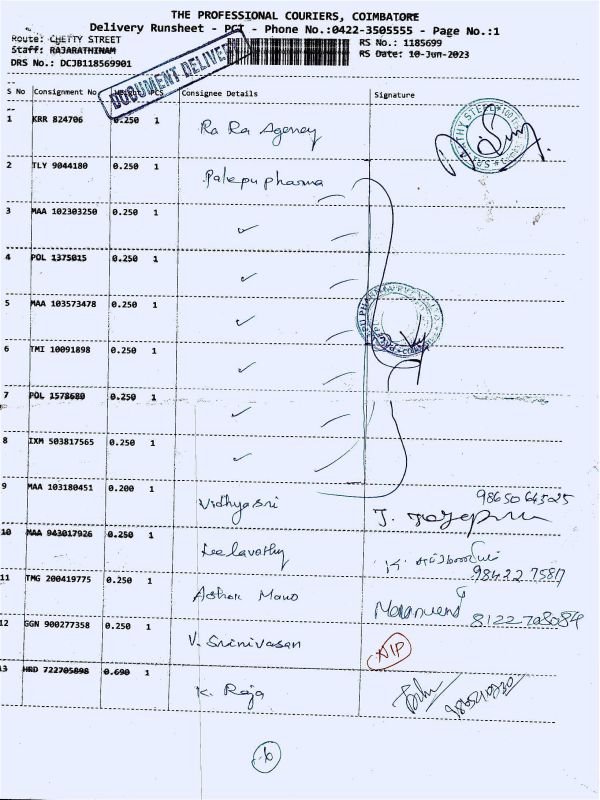 THE PROFESSIONAL COURIERS, COIMBATORE
Delivery Runsheet - PCT - Phone No.:0422-3505555 - Page No.:1
Route: CHETTY STREET
RS No.: 1185699
Staff: RAJARATHINAM
RS Date: 10-Jun-2023
DRS No.: DCJB118569901
DOCUMENT DELIVERY
S No Consignment No PCS Consignee Details Signature
1 KRR 824706 0.250 1 Ra Ra Agency
2 TLY 9044180 0.250 1 Palepu pharma
3 MAA 102303250 0.250 1 ✓
4 POL 1375015 0.250 1 ✓
5 MAA 103573478 0.250 1 ✓
6 TMI 10091898 0.250 1 ✓
7 POL 1578680 0.250 1 ✓
8 IXM 503817565 0.250 1 ✓
9 MAA 103180451 0.200 1 Vidhyasri 9865064525
10 MAA 943017926 0.250 1 Leelavathy K.
11 TMG 200419775 0.250 1 Ashok
12 GGN 900277358 0.250 1 V. Srinivasan N/P
13 HRD 722705898 0.690 1 K. Raja
6